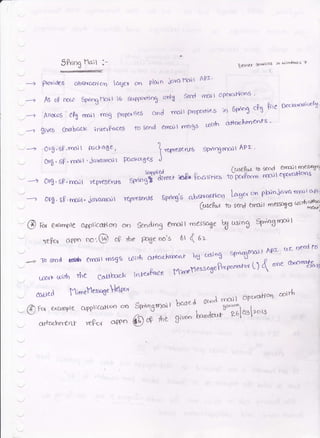 Spring Mail :-
Device services in windows 7
→ provides abstraction layer on plain java mail API.
→ As of now Spring Mail is supporting only send mail operations.
→ Allows cfg mail msg properties and mail properties in Spring cfg file Declaratively.
→ gives callback interfaces to send email msgs with attachments.
→ Org.sf.mail package,
Org.sf.mail.javamail packages } represents springmail API.
(useful to send email messages
→ Org.sf.mail represents Spring's supplied direct facilities to perform mail operations
→ Org.sf.mail.javamail represents Spring's abstraction layer on plain java mail api
(useful to send email message with attachment
For example application on Sending email message by using Spring mail
refer appn no: of the page no's 61 & 62
→ To send email msgs with attachment by using Spring Mail API we need to
work with the Callback Interface MimeMessagePreparator () & one
called MimeMessageHelper
For example application on Spring mail based send mail operation with
attachment refer appn of the given handout 26|03|2013